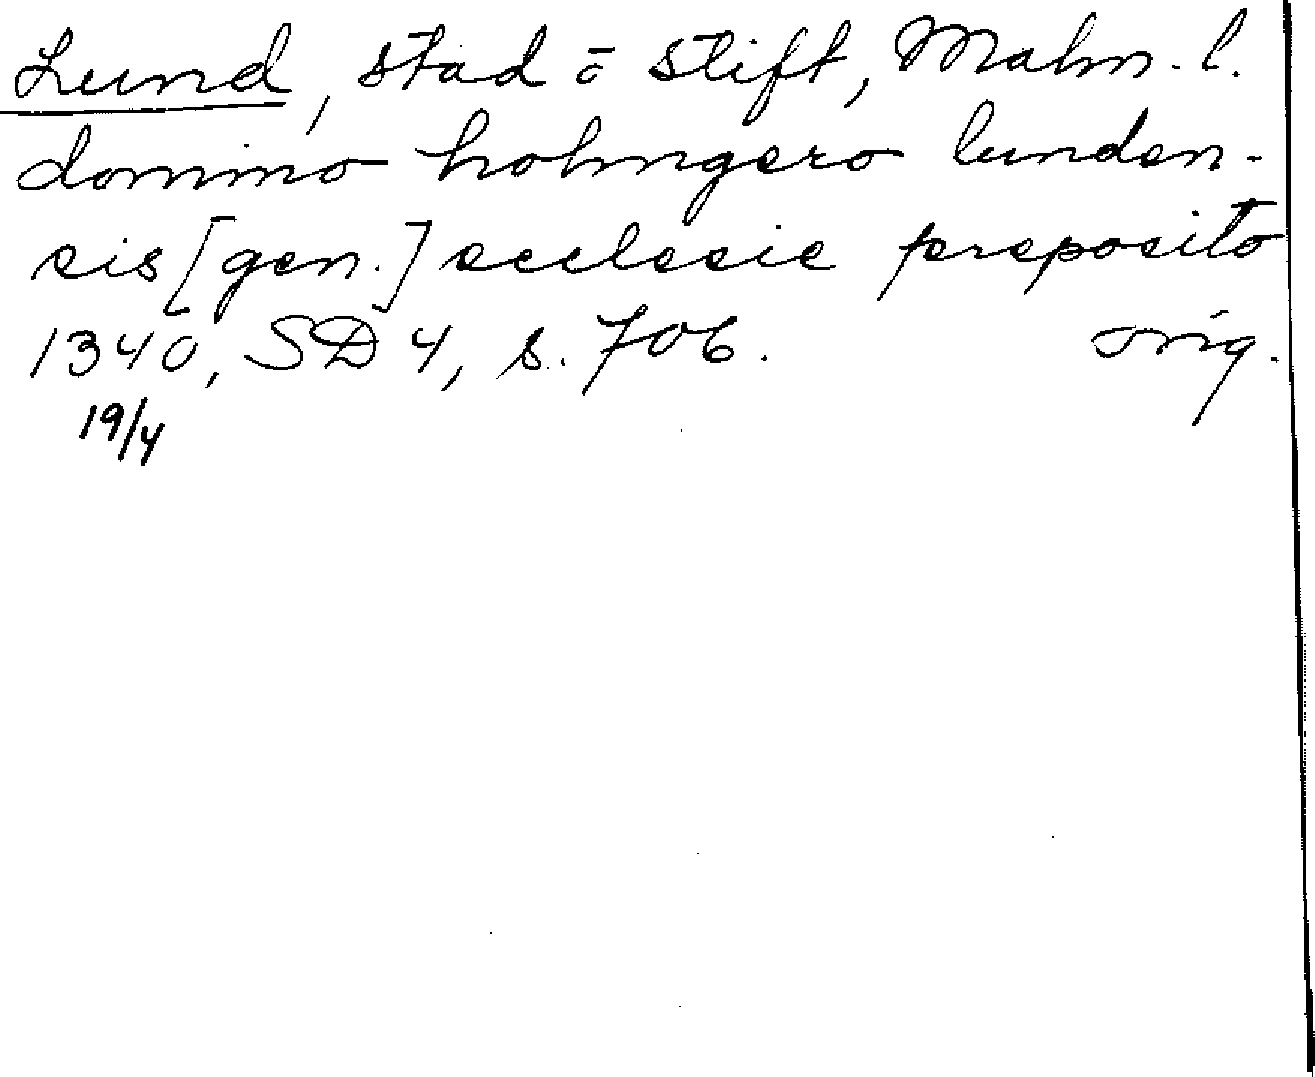 Lund, stad o stift, Malm. l.
domino holmgero lunden-
sis [gen.] ecclesie preposito
1340, SD 4, s. 706. orig.
19/4